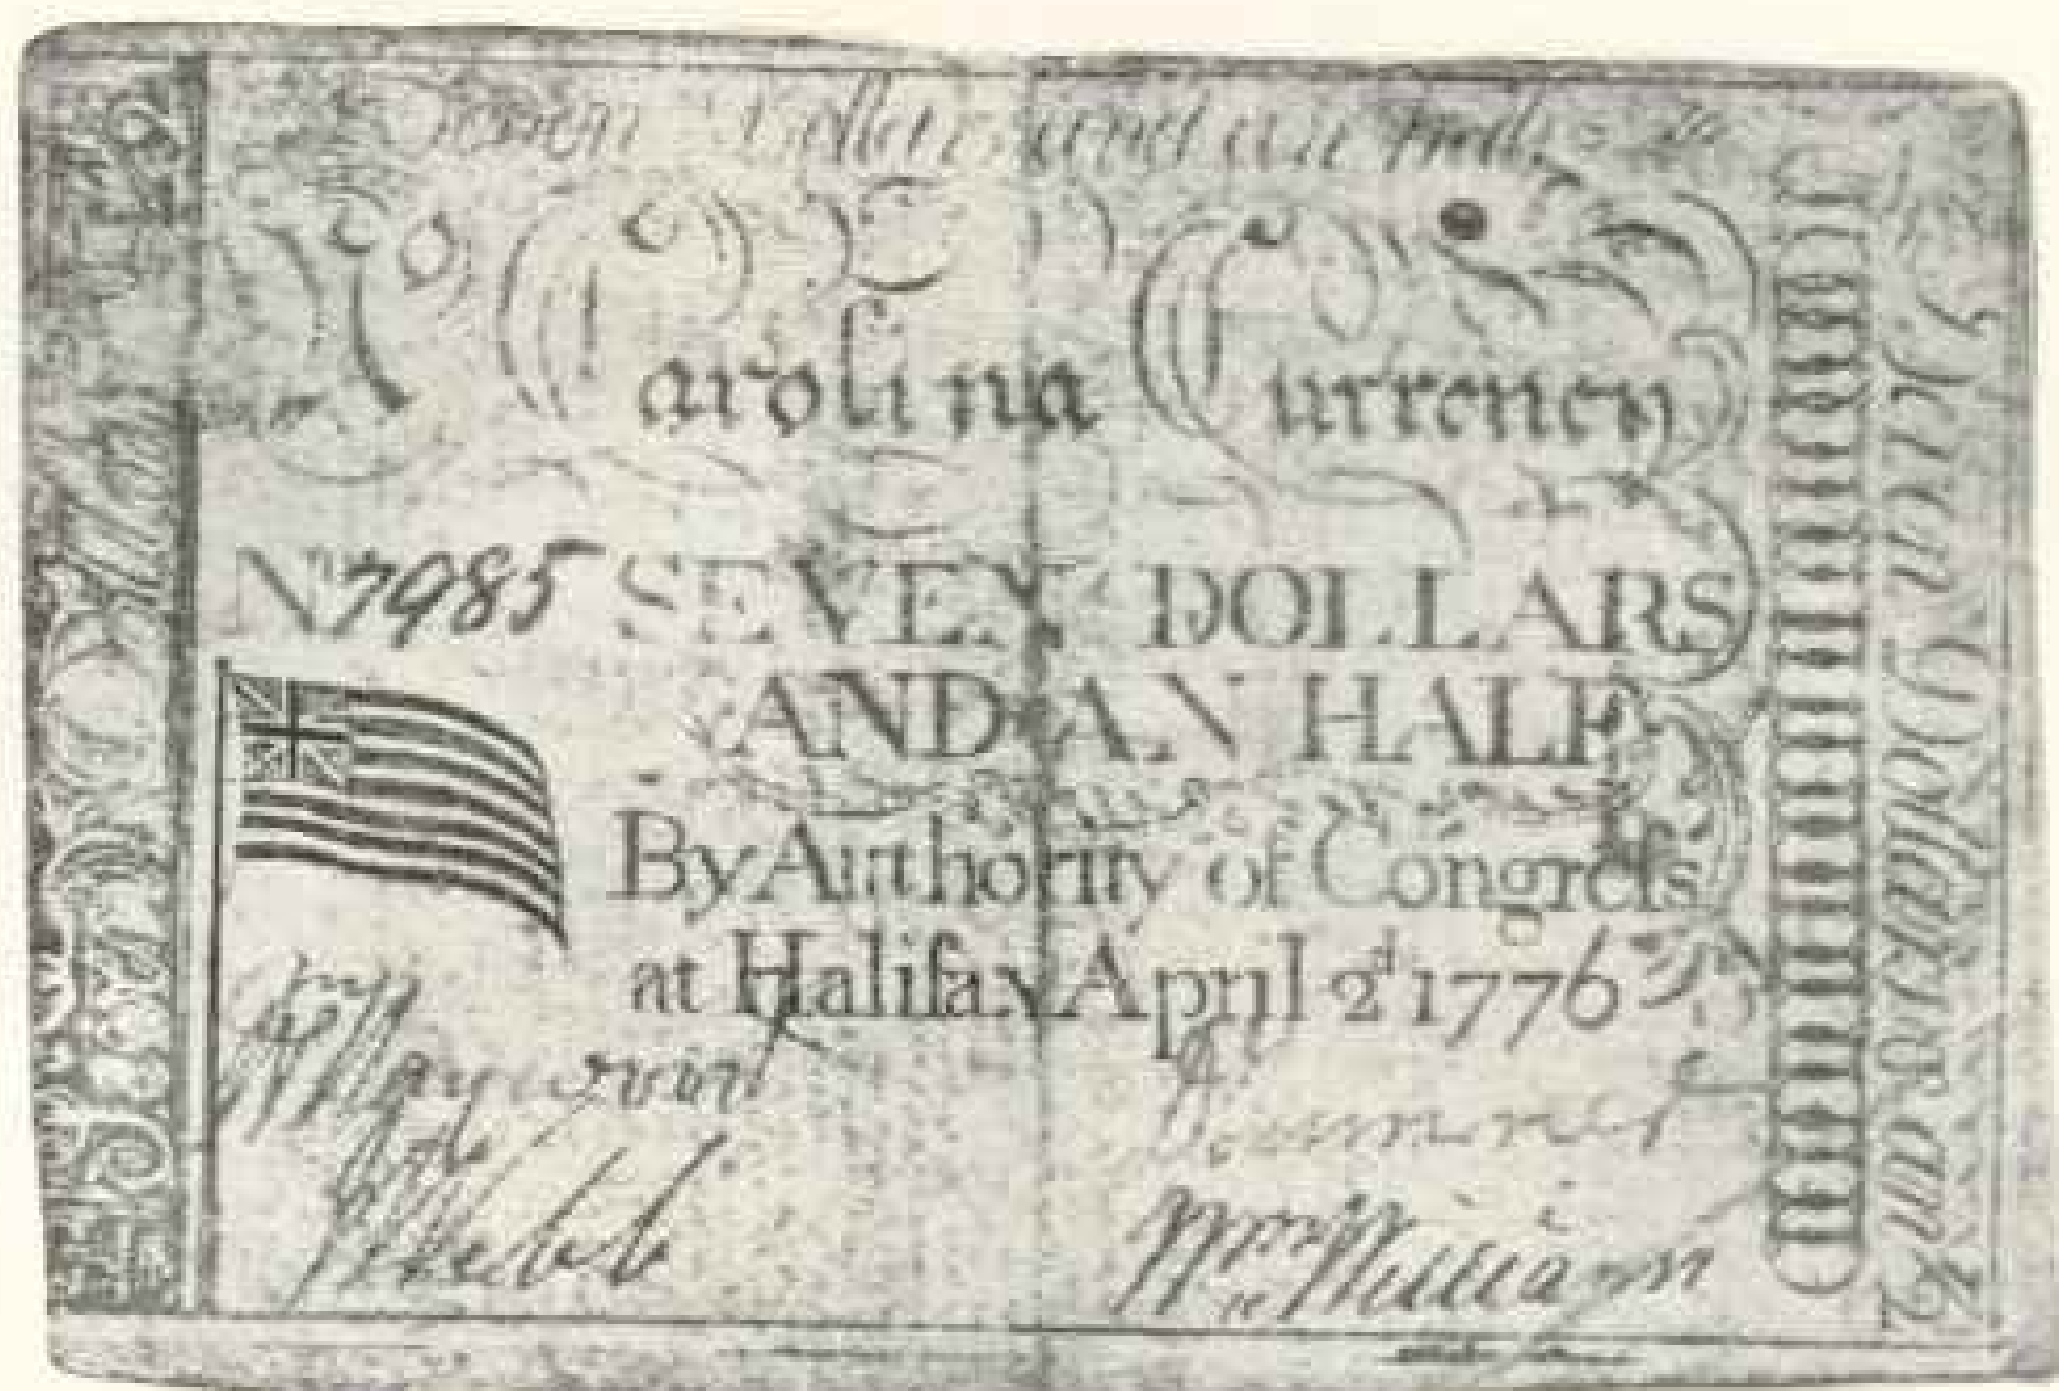 Seven Dollars and an half
No Carolina Currency
No 7985 SEVEN DOLLARS
AND AN HALF
By Authority of Congreſs
at Halifax April 2d 1776
Webb
Wm Williams
Seven Dollars & an ½